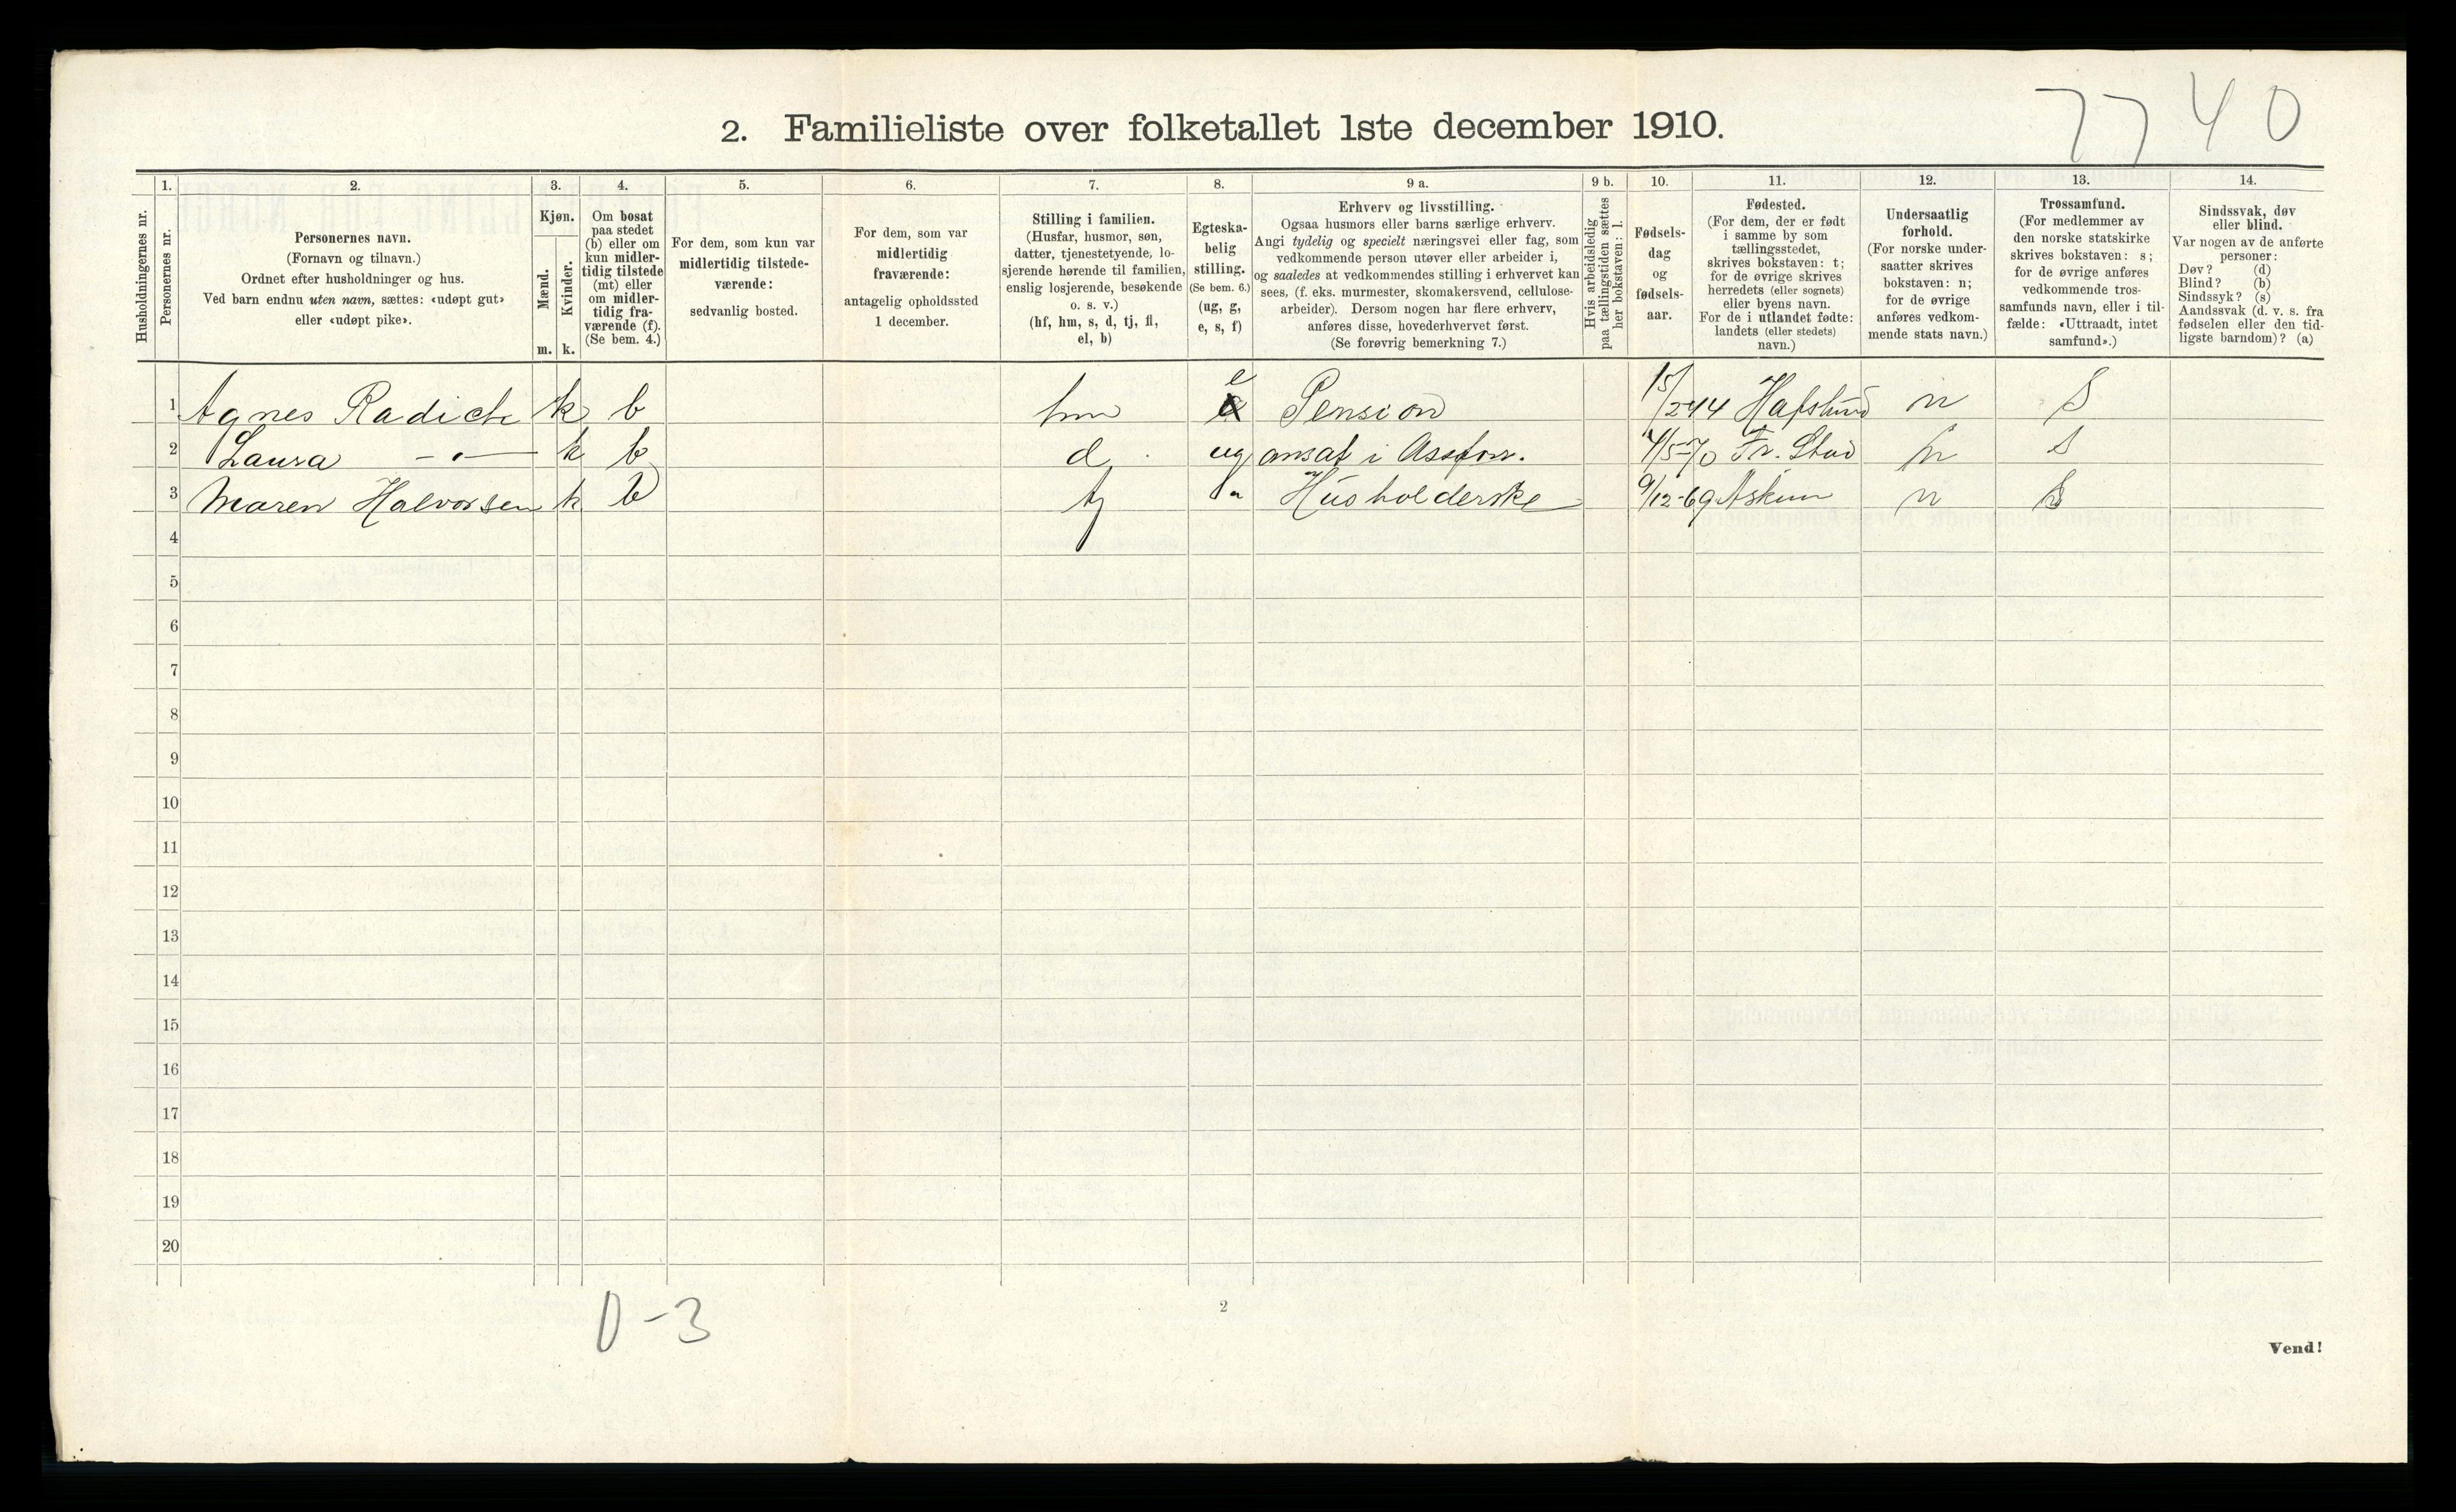 7740
2. Familieliste over folketallet 1ste december 1910.
Husholdningernes nr.
1.
Personernes nr.
2.
Personernes navn.
(Fornavn og tilnavn.)
Ordnet efter husholdninger og hus.
Ved barn endnu uten navn, sættes: «udøpt gut»
eller «udøpt pike».
3.
Kjøn.
Mænd.
m.
Kvinder.
k.
4.
Om bosat
paa stedet
(b) eller om
kun midler-
tidig tilstede
(mt) eller
om midler-
tidig fra-
værende (f).
(Se bem. 4.)
5.
For dem, som kun var
midlertidig tilstede-
værende:
sedvanlig bosted.
6.
For dem, som var
midlertidig
fraværende:
antagelig opholdssted
1 december.
7.
Stilling i familien.
(Husfar, husmor, søn,
datter, tjenestetyende, lo-
sjerende hørende til familien,
enslig losjerende, besøkende
o. s. v.)
(hf, hm, s, d, tj, fl,
el, b)
8.
Egteska-
belig
stilling.
(Se bem. 6.)
(ug, g,
e, s, f)
9 a.
Erhverv og livsstilling.
Ogsaa husmors eller barns særlige erhverv.
Angi tydelig og specielt næringsvei eller fag, som
vedkommende person utøver eller arbeider i,
og saaledes at vedkommendes stilling i erhvervet kan
sees, (f. eks. murmester, skomakersvend, cellulose-
arbeider). Dersom nogen har flere erhverv,
anføres disse, hovederhvervet først.
(Se forøvrig bemerkning 7.)
9 b.
Hvis arbeidsledig
paa tællingstiden sættes
her bokstaven: l.
10.
Fødsels-
dag
og
fødsels-
aar.
11.
Fødested.
(For dem, der er født
i samme by som
tællingsstedet,
skrives bokstaven: t;
for de øvrige skrives
herredets (eller sognets)
eller byens navn.
For de i utlandet fødte:
landets (eller stedets)
navn.)
12.
Undersaatlig
forhold.
(For norske under-
saatter skrives
bokstaven: n;
for de øvrige
anføres vedkom-
mende stats navn.)
13.
Trossamfund.
(For medlemmer av
den norske statskirke
skrives bokstaven: s;
for de øvrige anføres
vedkommende tros-
samfunds navn, eller i til-
fælde: «Uttraadt, intet
samfund».)
14.
Sindssvak, døv
eller blind.
Var nogen av de anførte
personer:
Døv? (d)
Blind? (b)
Sindssyk? (s)
Aandssvak (d. v. s. fra
fødselen eller den tid-
ligste barndom)? (a)
1 Agnes Radich k b hm e Pension 15/2 44 Hafslund n S
2 Laura -"- k b d ug ansat i Assfor. 4/5-70 Fr. Stad n S
3 Maren Halvorsen k b tj " Husholderske 9/12-69 Askim n S
4
5
6
7
8
9
10
11
12
13
14
15
16
17
18
19
20
0-3
2
Vend!